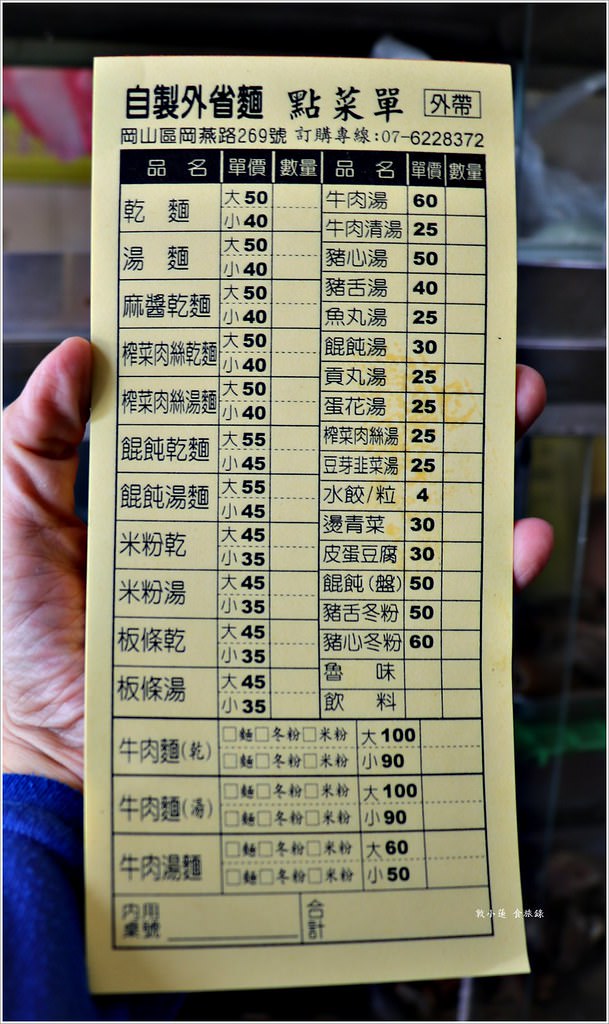 自製外省麵 點菜單 外帶
岡山區岡燕路269號 訂購專線:07-6228372
品名 單價 數量 品名 單價 數量
乾麵 大50 小40
湯麵 大50 小40
麻醬乾麵 大50 小40
榨菜肉絲乾麵 大50 小40
榨菜肉絲湯麵 大50 小40
餛飩乾麵 大55 小45
餛飩湯麵 大55 小45
米粉乾 大45 小35
米粉湯 大45 小35
板條乾 大45 小35
板條湯 大45 小35
牛肉湯 60
牛肉清湯 25
豬心湯 50
豬舌湯 40
魚丸湯 25
餛飩湯 30
貢丸湯 25
蛋花湯 25
榨菜肉絲湯 25
豆芽韭菜湯 25
水餃/粒 4
燙青菜 30
皮蛋豆腐 30
餛飩(盤) 50
豬舌冬粉 50
豬心冬粉 60
魯味
飲料
牛肉麵(乾) □麵□冬粉□米粉 大100
□麵□冬粉□米粉 小90
牛肉麵(湯) □麵□冬粉□米粉 大100
□麵□冬粉□米粉 小90
牛肉湯麵 □麵□冬粉□米粉 大60
□麵□冬粉□米粉 小50
內用桌號 合計
敦小蓮 食旅錄